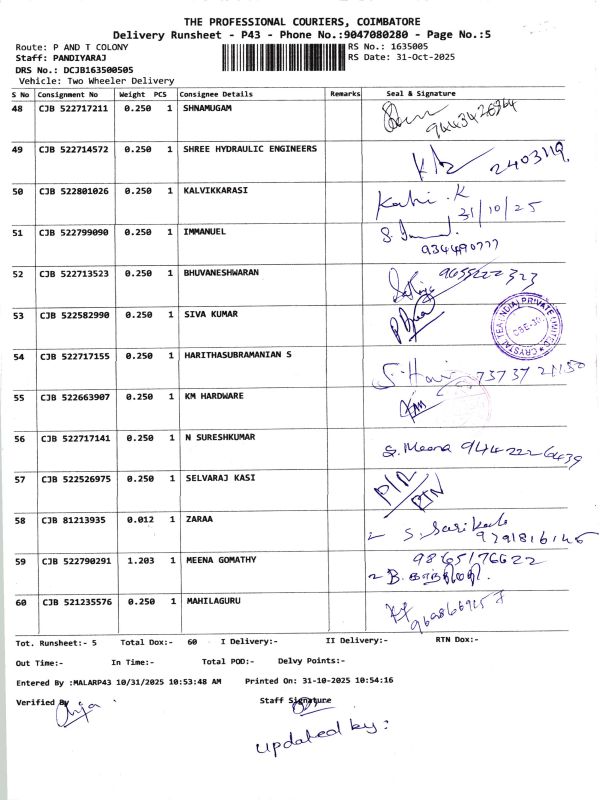 THE PROFESSIONAL COURIERS, COIMBATORE
Delivery Runsheet - P43 - Phone No.:9047080280 - Page No.:5
Route: P AND T COLONY
Staff: PANDIYARAJ
DRS No.: DCJB163500505
Vehicle: Two Wheeler Delivery
RS No.: 1635005
RS Date: 31-Oct-2025
S No Consignment No Weight PCS Consignee Details Remarks Seal & Signature
48 CJB 522717211 0.250 1 SHNAMUGAM
49 CJB 522714572 0.250 1 SHREE HYDRAULIC ENGINEERS 2403119
50 CJB 522801026 0.250 1 KALVIKKARASI
31/10/25
51 CJB 522799090 0.250 1 IMMANUEL
52 CJB 522713523 0.250 1 BHUVANESHWARAN
53 CJB 522582990 0.250 1 SIVA KUMAR
CRYSTAL TEA INDIA PRIVATE LIMITED
54 CJB 522717155 0.250 1 HARITHASUBRAMANIAN S
55 CJB 522663907 0.250 1 KM HARDWARE
56 CJB 522717141 0.250 1 N SURESHKUMAR
S. Meena
57 CJB 522526975 0.250 1 SELVARAJ KASI
58 CJB 81213935 0.012 1 ZARAA
59 CJB 522790291 1.203 1 MEENA GOMATHY 9865176622
60 CJB 521235576 0.250 1 MAHILAGURU
Tot. Runsheet:- 5 Total Dox:- 60 I Delivery:- II Delivery:- RTN Dox:-
Out Time:- In Time:- Total POD:- Delvy Points:-
Entered By :MALARP43 10/31/2025 10:53:48 AM Printed On: 31-10-2025 10:54:16
Verified By Staff Signature
updated by: